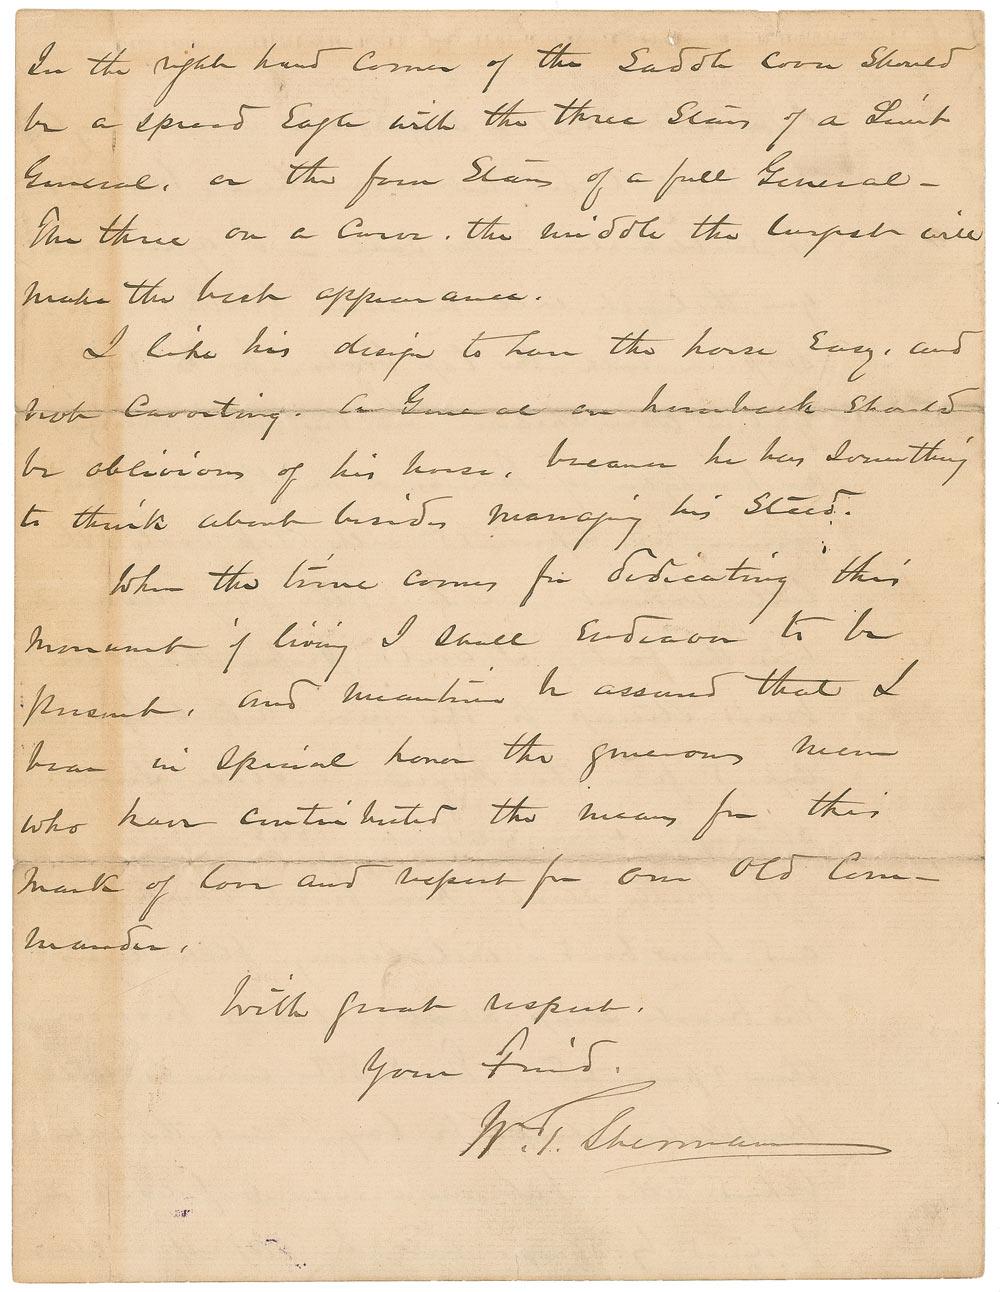 In the right hand corner of the Saddle cover should
be a spread Eagle with the three Stars of a Lieut
General, or the four Stars of a full General -
The three on a curve, the middle the largest will
make the best appearance.
I like his design to have the horse Easy, and
not cavorting. A General on horseback should
be oblivious of his horse, because he has Something
to think about besides managing his Steed.
When the time comes for dedicating this
monument if living I shall Endeavor to be
present, and meantime be assured that I
bear in special honor the generous men
who have contributed the means for this
mark of love and respect for our Old Com-
mander.
With great respect.
Your Friend.
W. T. Sherman